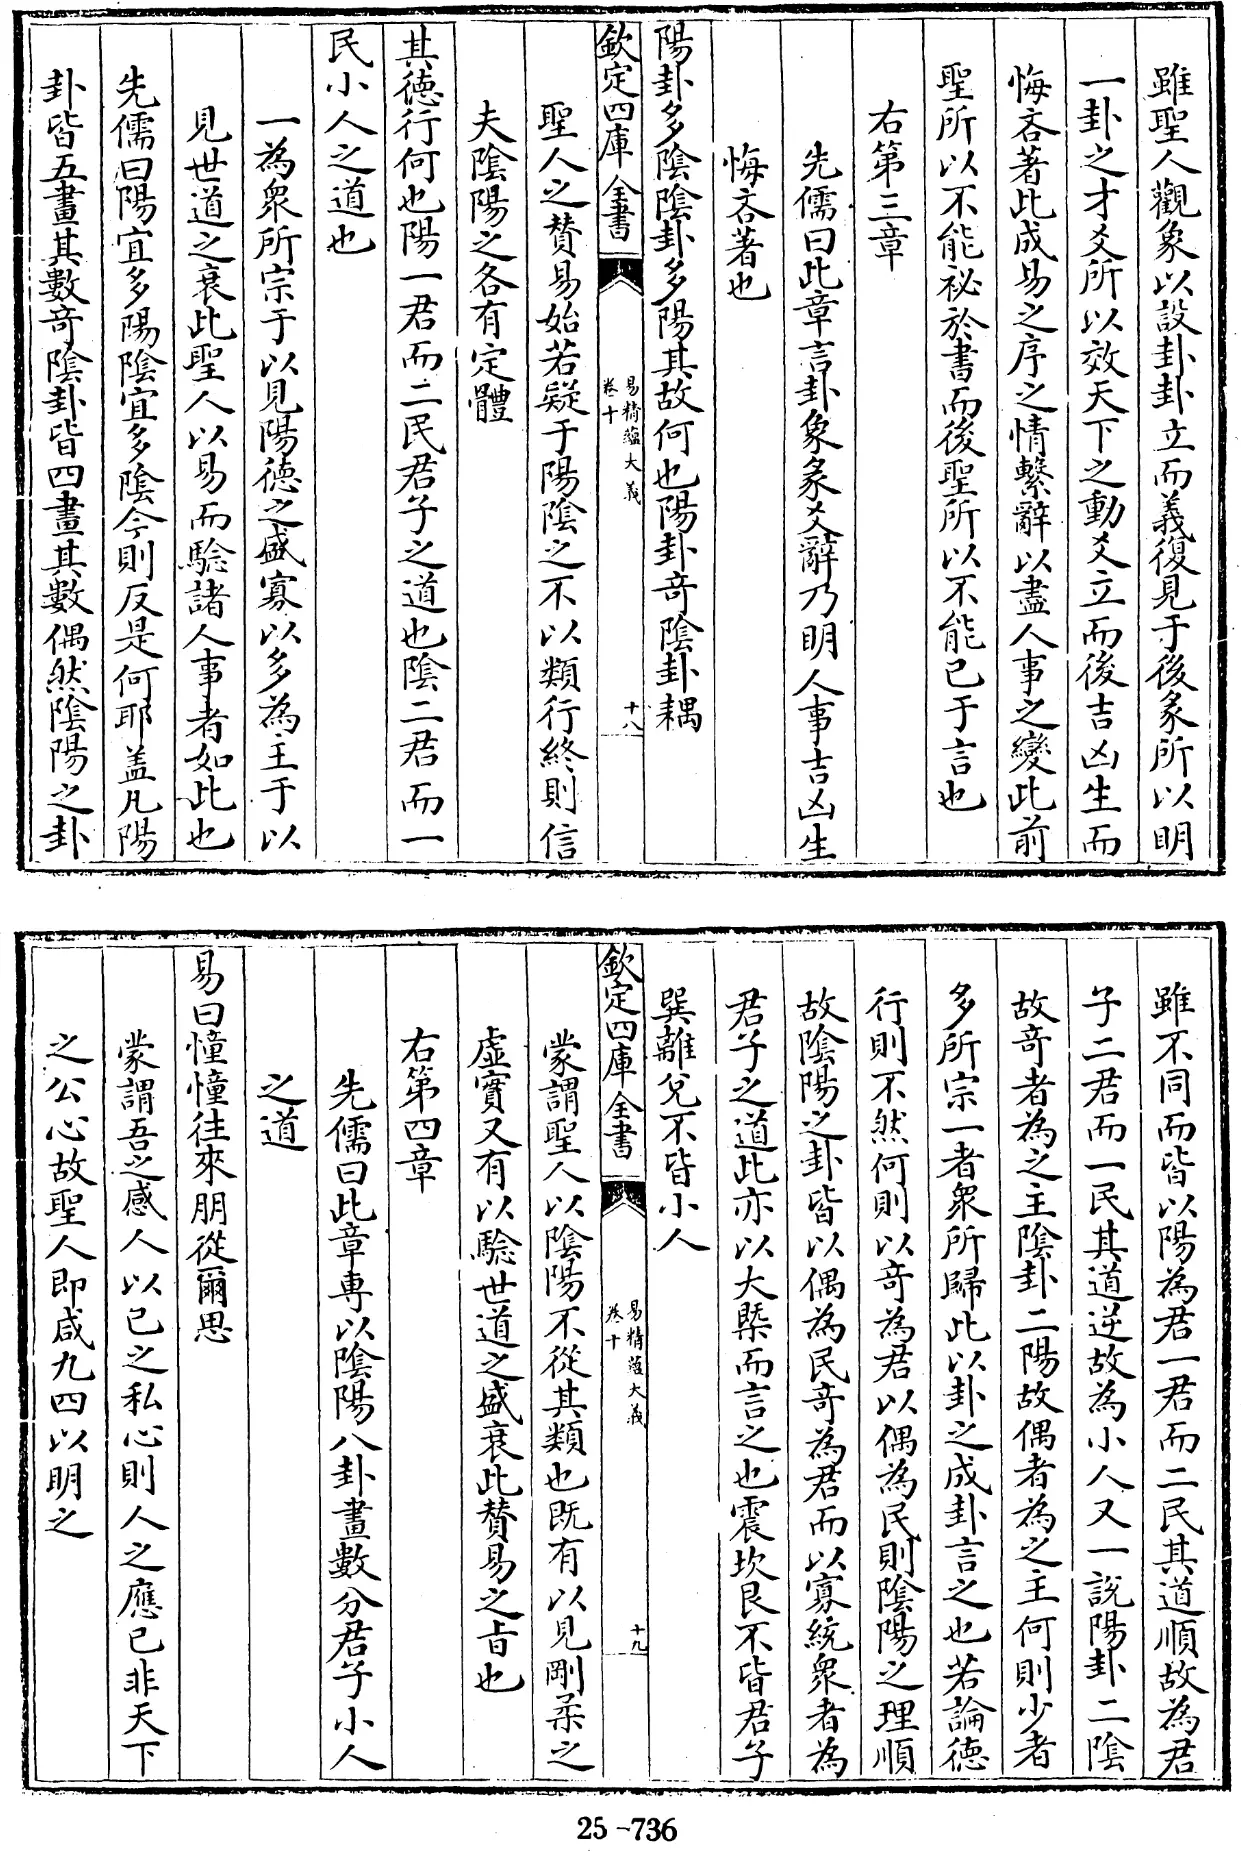 雖聖人觀象以設卦卦立而義復見于後彖所以明
一卦之才爻所以效天下之動爻立而後吉凶生而
悔吝著此成易之序之情繫辭以盡人事之變此前
聖所以不能祕於書而後聖所以不能已于言也
右第三章
先儒曰此章言卦象彖爻辭乃明人事吉凶生
悔吝著也
陽卦多陰陰卦多陽其故何也陽卦奇陰卦耦
欽定四庫全書
易精蘊大義
卷十
十八
聖人之賛易始若疑于陽陰之不以類行終則信
夫陰陽之各有定體
其德行何也陽一君而二民君子之道也陰二君而一
民小人之道也
一為衆所宗于以見陽德之盛寡以多為主于以
見世道之衰此聖人以易而騐諸人事者如此也
先儒曰陽宜多陽陰宜多陰今則反是何耶盖凡陽
卦皆五畫其數奇陰卦皆四畫其數偶然陰陽之卦
雖不同而皆以陽為君一君而二民其道順故為君
子二君而一民其道逆故為小人又一說陽卦二陰
故奇者為之主陰卦二陽故偶者為之主何則少者
多所宗一者衆所歸此以卦之成卦言之也若論德
行則不然何則以奇為君以偶為民則陰陽之理順
故陰陽之卦皆以偶為民奇為君而以寡統衆者為
君子之道此亦以大槩而言之也震坎艮不皆君子
巽離兌不皆小人
欽定四庫全書
易精蘊大義
卷十
十九
蒙謂聖人以陰陽不從其類也既有以見剛柔之
虛實又有以騐世道之盛衰此賛易之旨也
右第四章
先儒曰此章專以陰陽八卦畫數分君子小人
之道
易曰憧憧往來朋從爾思
蒙謂吾之感人以已之私心則人之應已非天下
之公心故聖人即咸九四以明之
25-736